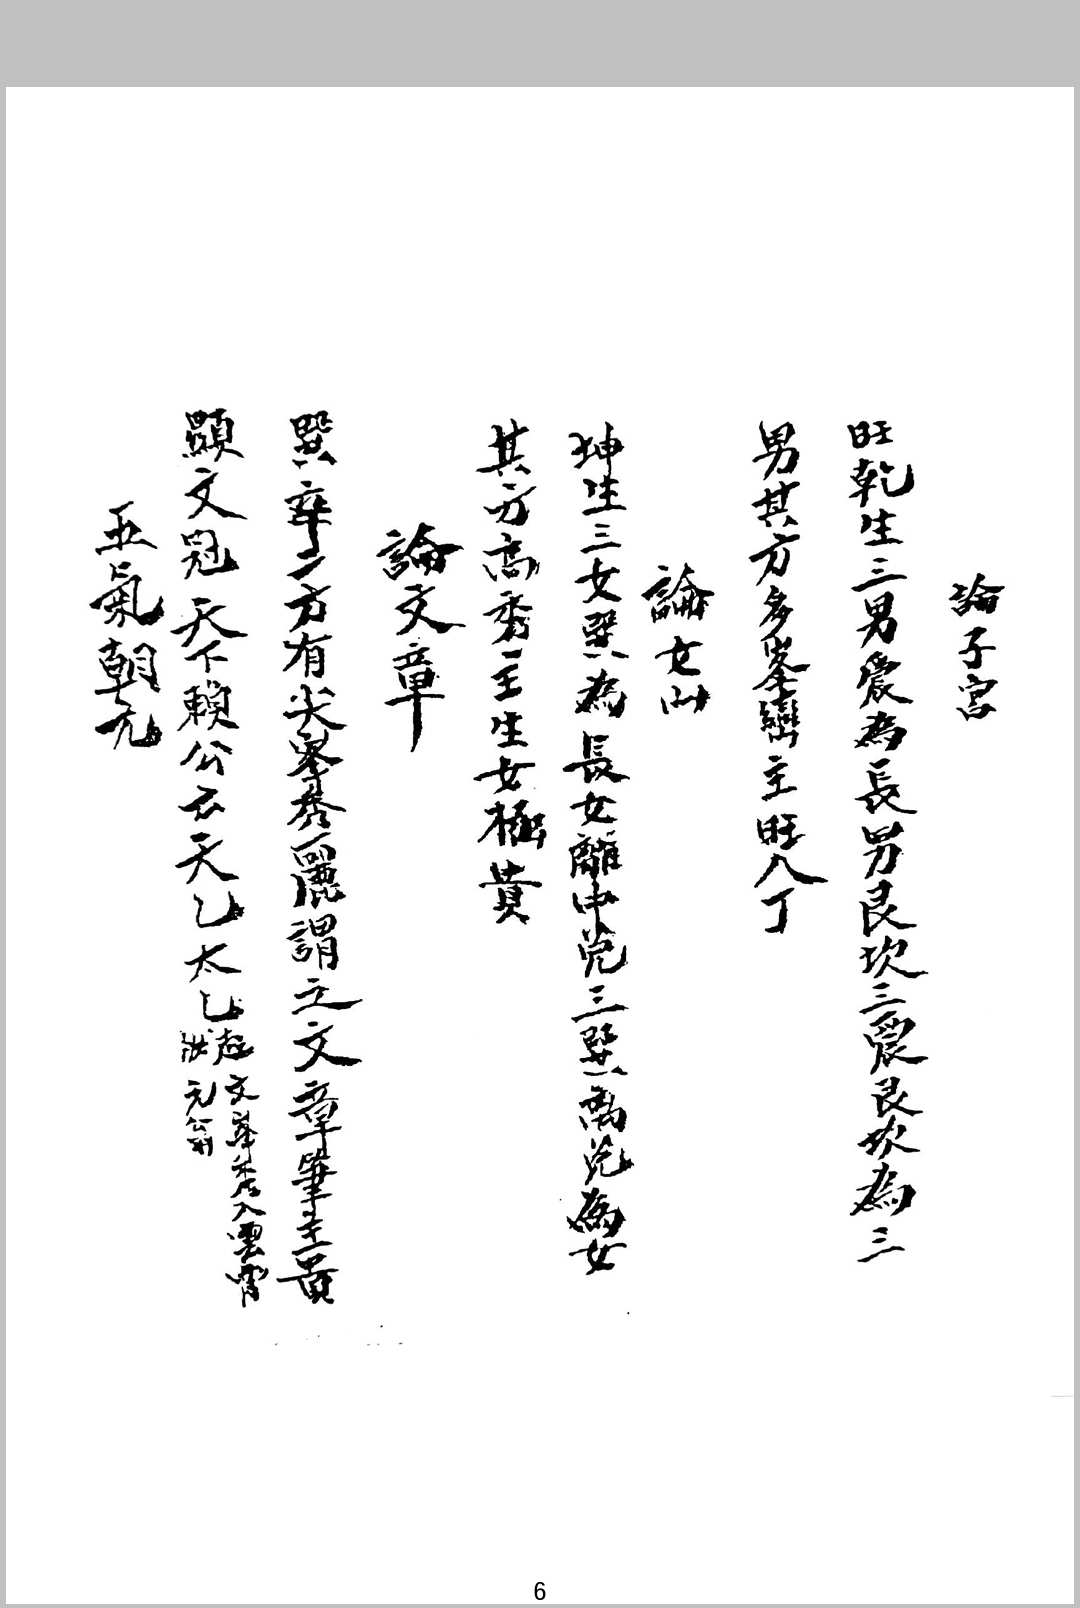 論子宮
旺乾生三男震為長男艮坎三震艮坎為三
男其方多峯巒主旺人丁
論女山
坤生三女巽為長女離中兌三巽离兌為女
其方高秀主生女極貴
論文章
巽辛二方有尖峯秀麗謂之文章筆主貴
顯文冠天下賴公云天乙太乙起文峯秀入雲霄
狀元翁
五氣朝元
6